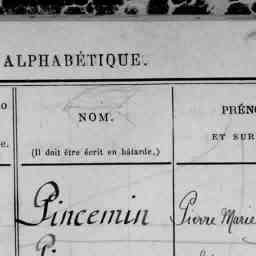 ALPHABÉTIQUE.
NOM.
(Il doit être écrit en bâtarde.)
PRÉNO
ET SUR
o
e.
Pincemin Pierre Marie